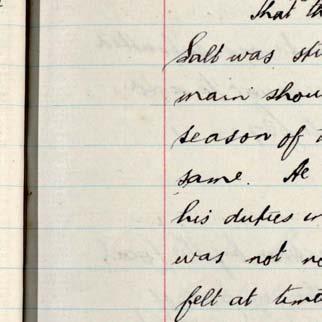 That th
Salt was sti
main shou
season of t
same. He
his duties in
was not re
felt at time